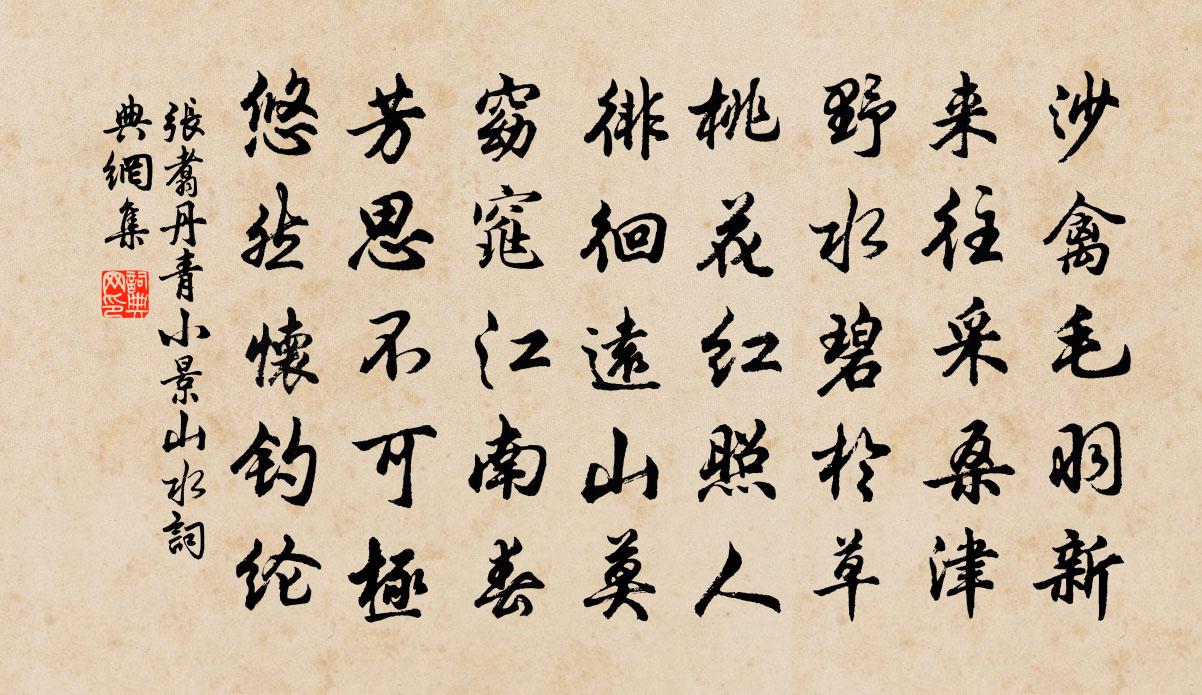 沙禽毛羽新
来往采桑津
野水碧於草
桃花红照人
徘徊遠山莫
窈窕江南春
芳思不可極
悠然懷钓纶
張翥丹青小景山水詞
典網集
詞典网印